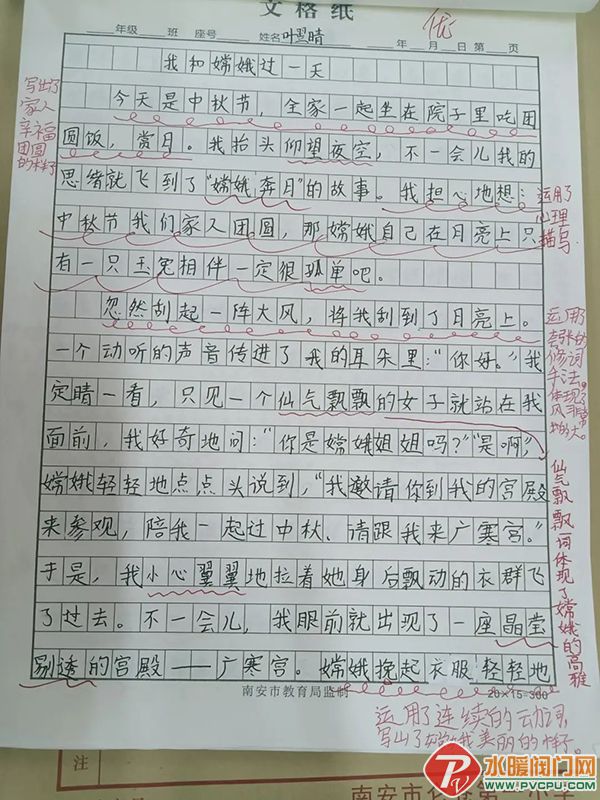 文格纸
优
年级 班 座号 姓名叶翌晴 年 月 日 第 页
我和嫦娥过一天
今天是中秋节，全家一起坐在院子里吃团
圆饭，赏月。我抬头仰望夜空，不一会儿我的
思绪就飞到了“嫦娥奔月”的故事。我担心地想：
中秋节我们家人团圆，那嫦娥自己在月亮上只
有一只玉兔相伴一定很孤单吧。
忽然刮起一阵大风，将我刮到了月亮上。
一个动听的声音传进了我的耳朵里：“你好。”我
定睛一看，只见一个仙气飘飘的女子就站在我
面前，我好奇地问：“你是嫦娥姐姐吗？”“是啊”，
嫦娥轻轻地点点头说到，“我邀请你到我的宫殿
来参观，陪我一起过中秋、请跟我来广寒宫。”
于是，我小心翼翼地拉着她身后飘动的衣群飞
了过去。不一会儿，我眼前就出现了一座晶莹
剔透的宫殿——广寒宫。嫦娥挽起衣服轻轻地
南安市教育局监制 20×15=300
写出了
家人
幸福
团圆
的样子
运用了
心理
描写.
运用了
夸张的
修词
手法,
体现了
风非常
地大。
仙气飘飘词体现了嫦娥的高雅
运用了连续的动词
写出了嫦娥美丽的样子。
注
水暖阀门网
WWW.PVCPU.COM